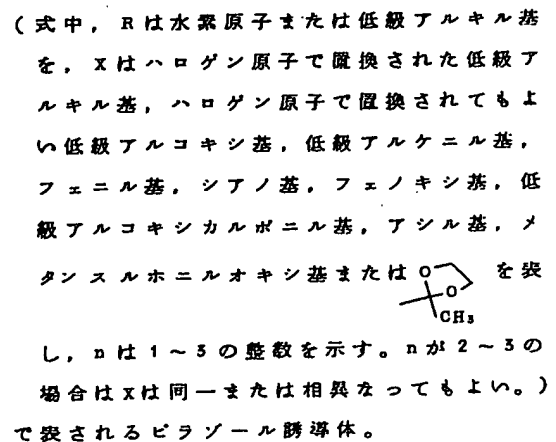 (式中，Rは水素原子または低級アルキル基
を，Xはハロゲン原子で置換された低級ア
ルキル基，ハロゲン原子で置換されてもよ
い低級アルコキシ基，低級アルケニル基，
フェニル基，シアノ基，フェノキシ基，低
級アルコキシカルボニル基，アシル基，メ
タンスルホニルオキシ基または O O CH₃ を表
し，nは1～3の整数を示す。nが2～3の
場合はXは同一または相異なってもよい。)
で表されるピラゾール誘導体。